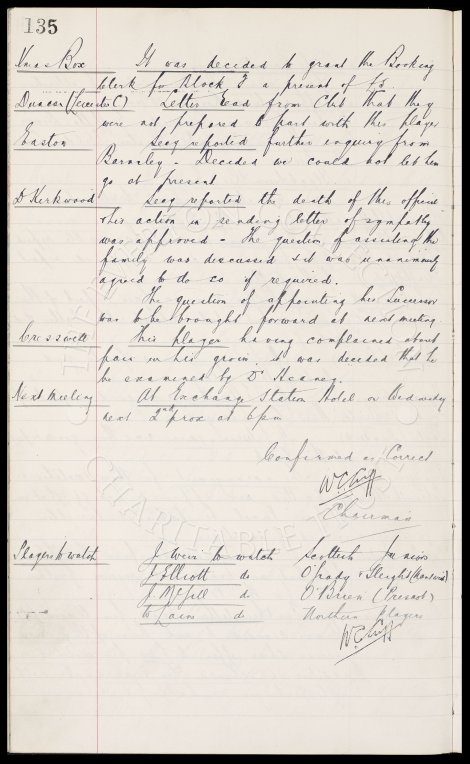 135
Xmas Box It was decided to grant the Booking
Clerk for Block E a present of £5.
Duncan (Leicester C) Letter read from Club that they
were not prepared to part with this player
Easton Secy reported further enquiry from
Barnsley - Decided we could not let him
go at present
D Kirkwood Secy reported the death of this official
& his action in sending letter of sympathy
was approved - The question of assisting the
family was discussed & it was unanimously
agreed to do so if required.
The question of appointing his Successor
was to be brought forward at next meeting
Cresswell This player having complained about
pain in his groin. it was decided that he
be examined by Dr Heaney.
Next Meeting At Exchange Station Hotel on Wednesday
next 2nd prox at 6pm
Confirmed as Correct
W.C. Cuff
Chairman
Players to watch J Weir to watch Scottish Juniors
T Elliott do O'Grady & Sleight (Mansfield)
J. McGill do O'Brien (Prescot)
do Northern Players
W.C. Cuff
CHARITABLE